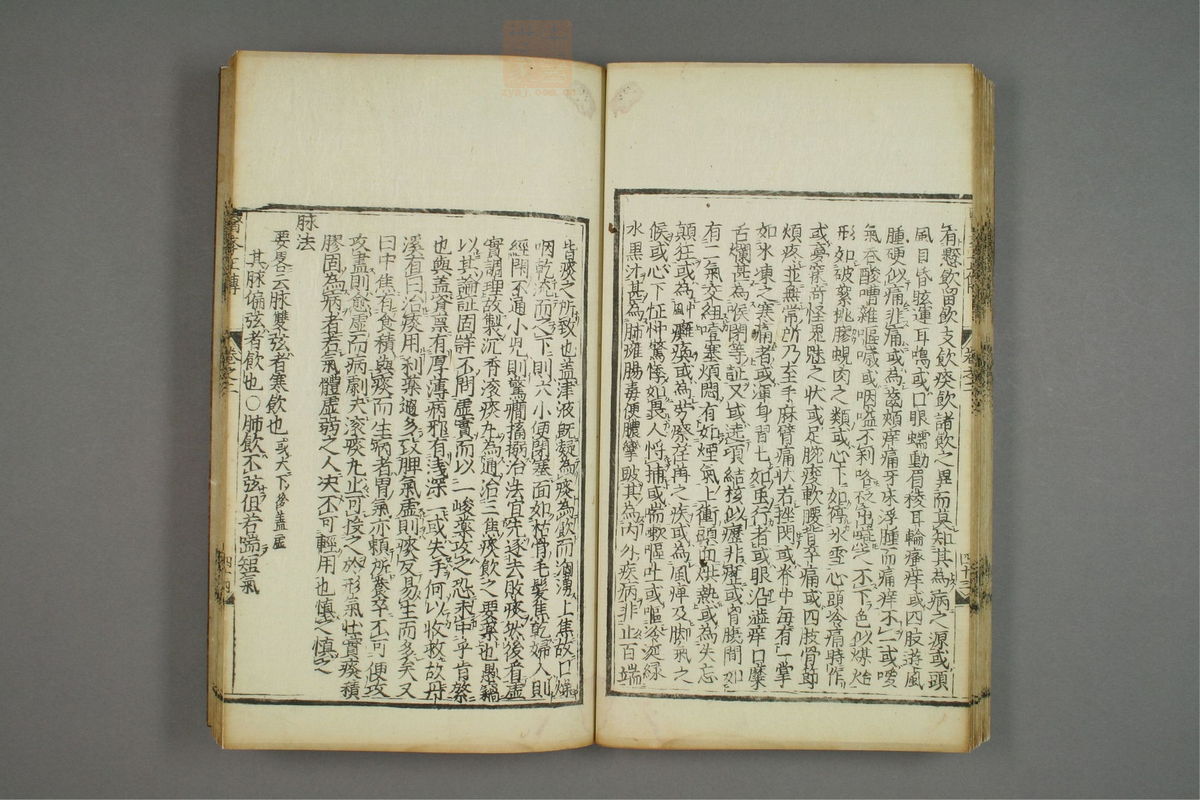 有懸飲留飲支飲痰飲諸飲之異而莫知其為病之源或頭
風目昏眩運耳鳴或口眼蠕動眉稜耳輪瘙痒或四肢遊風
腫硬似痛非痛或為齒頰痒痛牙床浮腫而痛痒不一或噯
氣吞酸嘈雜嘔噦或咽嗌不利咯之不出嚥之不下色似煤炲
形如破絮桃膠蜆肉之類或心下如停氷雪心頭冷痛時作
或夢寐奇怪鬼魅之狀或足腕痠軟腰背卒痛或四肢骨節
煩疼並無常所乃至手麻臂痛狀若挫閃或脊中每有一掌
如氷凍之寒痛者或渾身習七如虫行者或眼沿澁痒口糜
舌爛甚為喉閉等証又或遶項結核似癧非癧或胸腹間如
有二氣交紐噎塞煩悶有如煙氣上衝頭面烘熱或為失忘
顛狂或為中風癱瘓或為勞瘵荏苒之疾或為風痺及脚氣之
候或心下怔忡驚悸如畏人將捕或喘嗽嘔吐或嘔冷涎綠
水黑汁甚為肺癰腸毒便膿攣跛其為内外疾病非止百端
皆痰之所致也盖津液既凝為痰為飲而洶湧上焦故口燥
咽乾流而之下則大小便閉塞面如枯骨毛髮焦乾婦人則
經閉不通小児則驚癇搐搦治法宜先逐去敗痰然後看虛
實調理故製沉香滾痰九為通治三焦痰飲之要藥也愚竊
以其論証固詳不問虛實而以一峻藥攻之恐未中乎肯綮
也與盖稟有厚薄病邪有浅深一或失手何以收救故丹
溪有曰治痰用利藥過多致脾氣虛則痰反易生而多矣又
曰中焦有食積與痰而生病者胃氣亦賴所養卒不可便攻
攻盡則愈虛而病劇夫滾痰九止可投之於形氣壮實痰積
膠固為病者若氣體虛弱之人决不可輕用也慎之慎之
脉法
要畧云脉雙弦者寒飲也或大下後善虛
其脉偏弦者飲也〇肺飲不弦但若喘短氣
卷之二
四十四